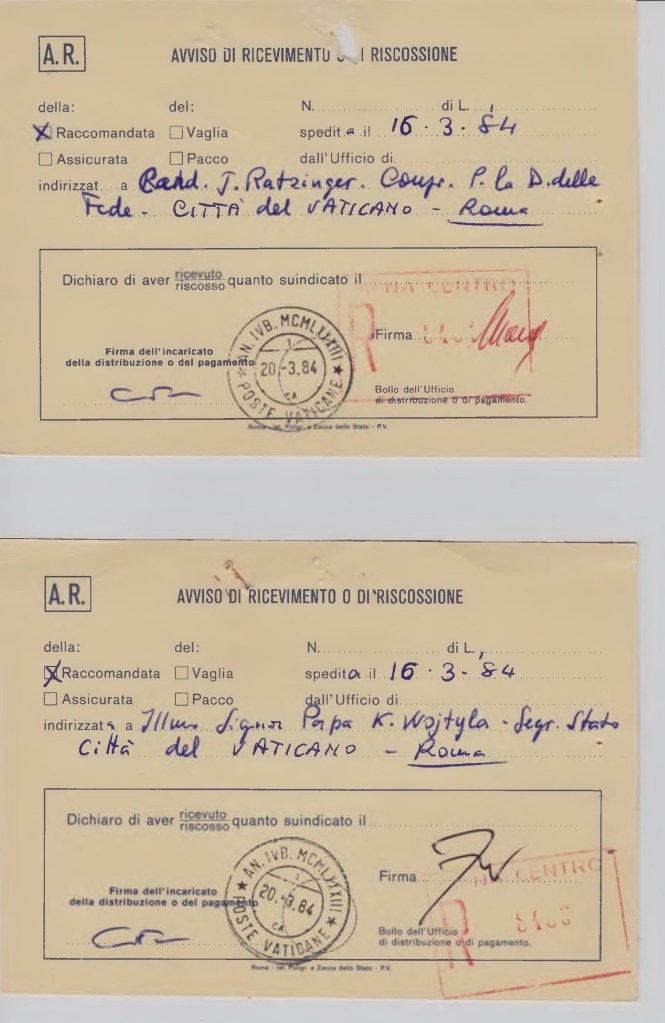 A.R.
AVVISO DI RICEVIMENTO O DI RISCOSSIONE
della: del: N. di L.
Raccomandata Vaglia spedita il 16 · 3 · 84
Assicurata Pacco dall'Ufficio di
indirizzat a Card. J. Ratzinger. Congr. P. la D. delle
Fede - CITTÀ del VATICANO - Roma
Dichiaro di aver ricevuto quanto suindicato il
riscosso
NA CENTRO
R
Firma
Firma dell'incaricato
della distribuzione o del pagamento
AN. IVB. MCMLXXXIII
20.-3.84
POSTE VATICANE
Bollo dell'Ufficio
di distribuzione o di pagamento.
Roma - Ist. Poligr. e Zecca dello Stato - P.V.
A.R.
AVVISO DI RICEVIMENTO O DI RISCOSSIONE
della: del: N. di L.
Raccomandata Vaglia spedita il 16 · 3 - 84
Assicurata Pacco dall'Ufficio di
indirizzata a Illmo Signor Papa K. Wojtyla - Segr. Stato
Città del VATICANO - Roma
Dichiaro di aver ricevuto quanto suindicato il
riscosso
NA CENTRO
R
Firma
Firma dell'incaricato
della distribuzione o del pagamento
AN. IVB. MCMLXXXIII
20.-3.84
POSTE VATICANE
Bollo dell'Ufficio
di distribuzione o di pagamento.
Roma - Ist. Poligr. e Zecca dello Stato - P.V.